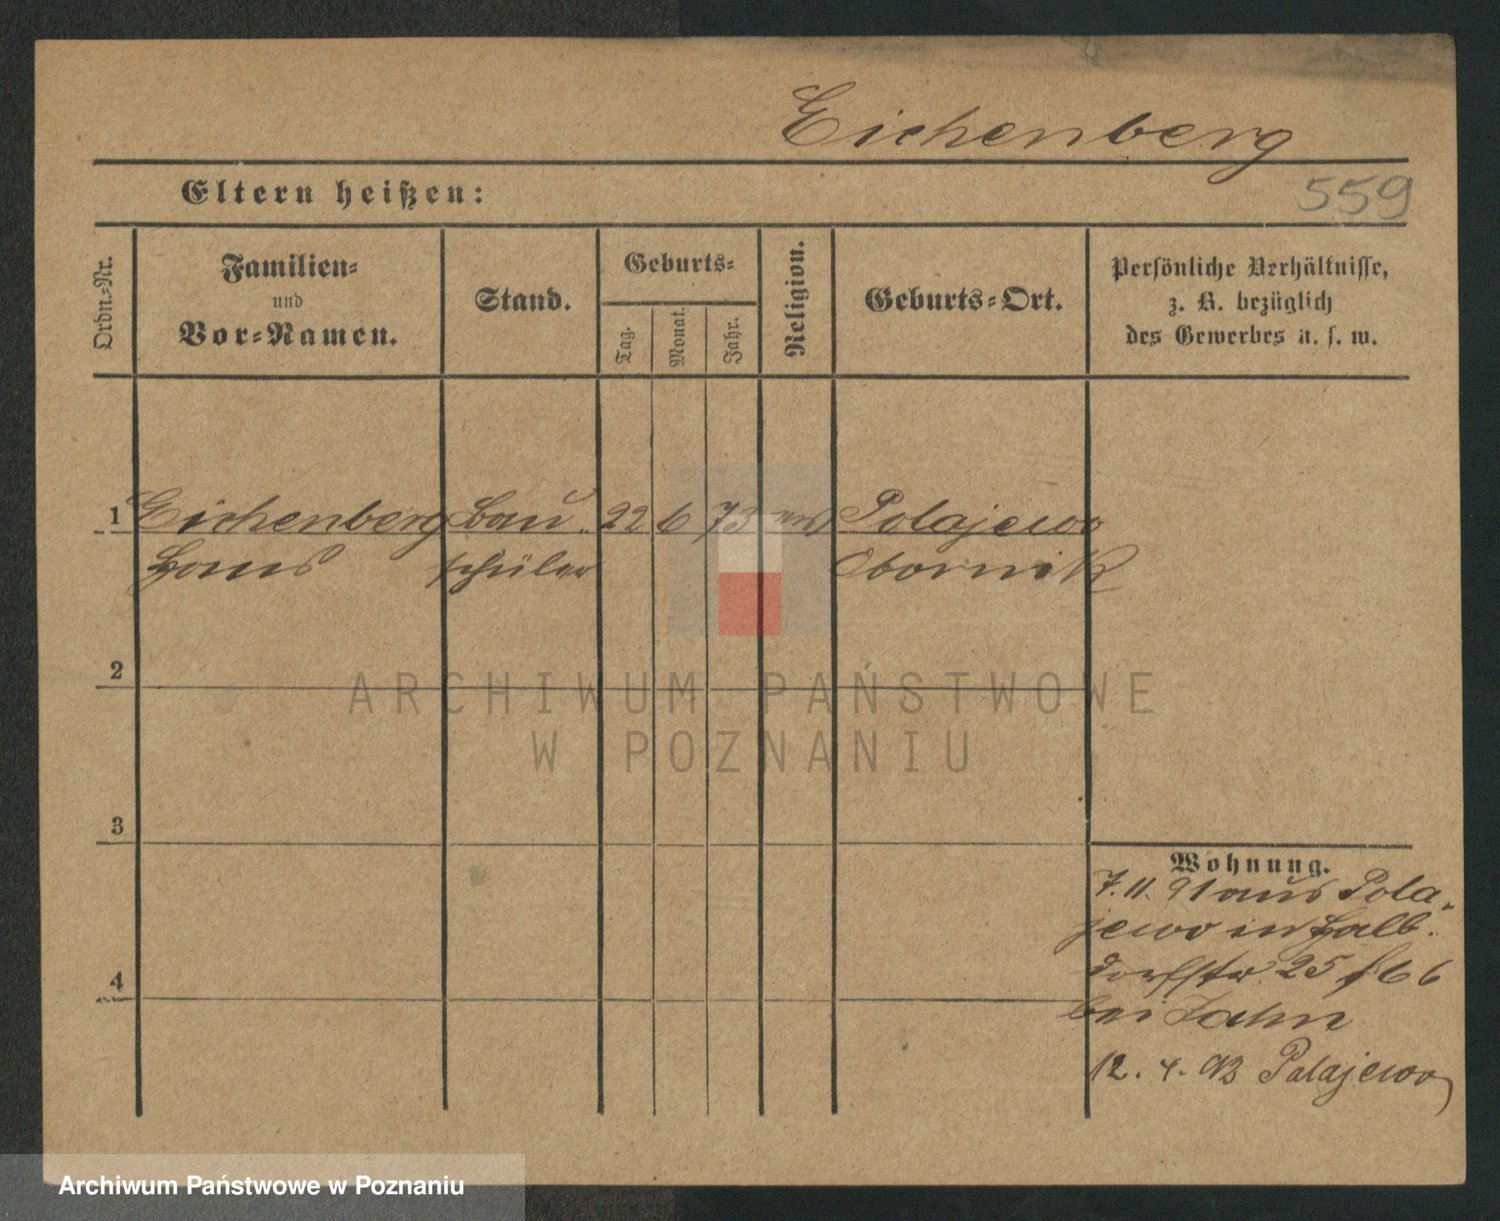 Eichenberg
Eltern heißen:
559
Ordn.-Nr.
Familien-
und
Vor-Namen.
Stand.
Geburts-
Tag.
Monat.
Jahr.
Religion.
Geburts-Ort.
Persönliche Verhältnisse,
z. B. bezüglich
des Gewerbes u. s. w.
1 Eichenberg Bau- 22 6 73 Polajewo
Hans schüler Obornik
2
3
4
Wohnung.
7.11.91 aus Pola-
jewo in Halb-
dorfstr. 25 66
bei Jahn
12. 4. 93 Polajewo
ARCHIWUM PAŃSTWOWE
W POZNANIU
Archiwum Państwowe w Poznaniu